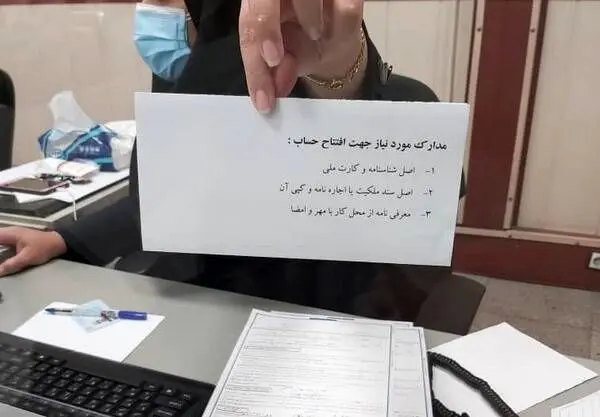 مدارك مورد نیاز جهت افتتاح حساب :
۱- اصل شناسنامه و کارت ملی
۲- اصل سند ملکیت یا اجاره نامه و کپی آن
۳- معرفی نامه از محل کار با مهر و امضا